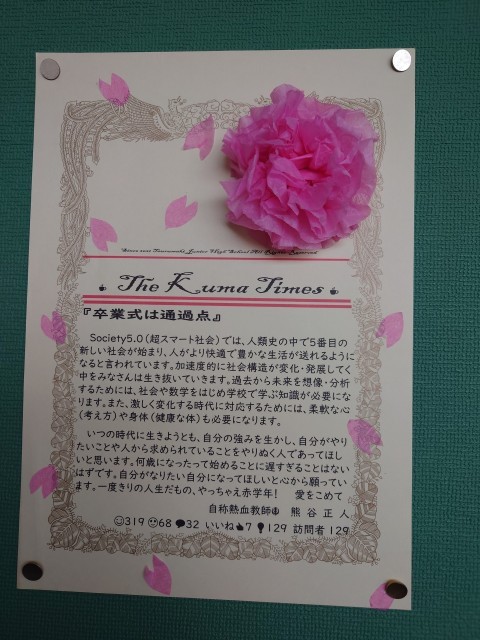 The Kuma Times
『卒業式は通過点』
Society5.0（超スマート社会）では、人類史の中で5番目の
新しい社会が始まり、人がより快適で豊かな生活が送れるように
なると言われています。加速度的に社会構造が変化・発展してく
中をみなさんは生き抜いていきます。過去から未来を想像・分析
するためには、社会や数学をはじめ学校で学ぶ知識が必要にな
ります。また、激しく変化する時代に対応するためには、柔軟な心
（考え方）や身体（健康な体）も必要になります。
いつの時代に生きようとも、自分の強みを生かし、自分がやり
たいことや人から求められていることをやりぬく人であってほし
いと思います。何歳になったって始めることに遅すぎることはない
はずです。自分がなりたい自分になってほしいと心から願ってい
ます。一度きりの人生だもの、やっちゃえ赤学年！ 愛をこめて
自称熱血教師 熊谷正人
319 68 32 いいね 7 129 訪問者 129